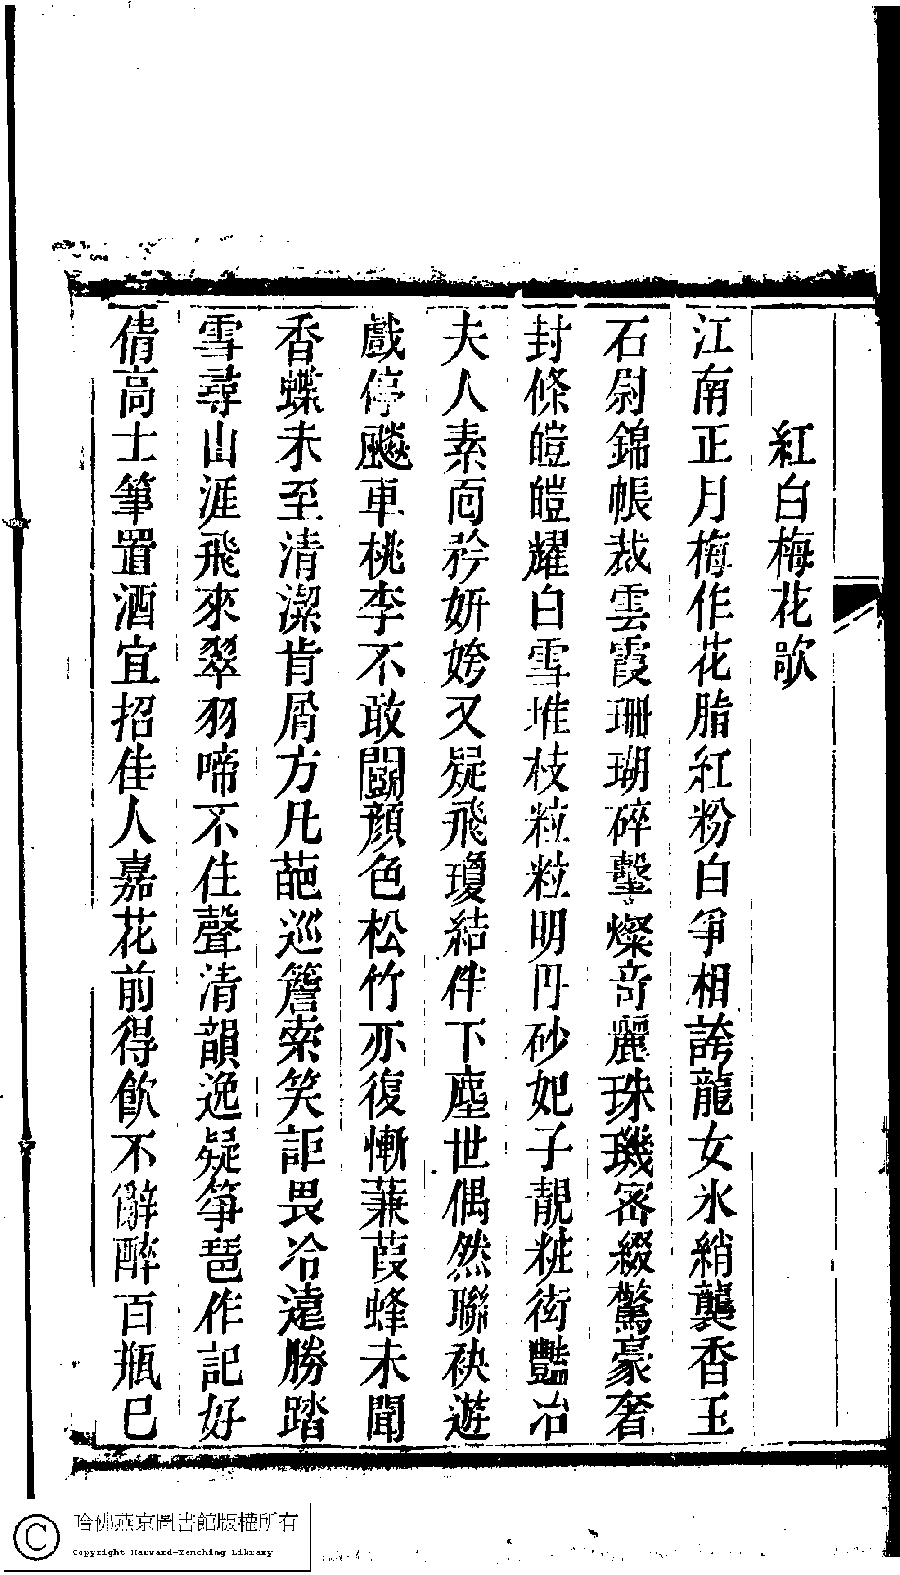 紅白梅花歌
江南正月梅作花脂紅粉白爭相誇龍女氷綃襲香玉
石尉錦帳裁雲霞珊瑚碎鑿燦竒麗珠璣密綴驚豪奢
封條皚皚耀白雪堆枝粒粒明丹砂妃子靚粧衒豔冶
夫人素面矜妍姱又疑飛瓊結伴下塵世偶然聯袂遊
戲停飈車桃李不敢鬪顔色松竹亦復慚蒹葭蜂未聞
香蝶未至清潔肯屑方凡葩巡簷索笑詎畏冷遠勝踏
雪尋山涯飛來翠羽啼不住聲清韻逸疑箏琶作記好
倩高士筆置酒宜招佳人嘉花前得飲不辭醉百瓶巳
哈佛燕京圖書館版權所有
Copyright Harvard-Yenching Library